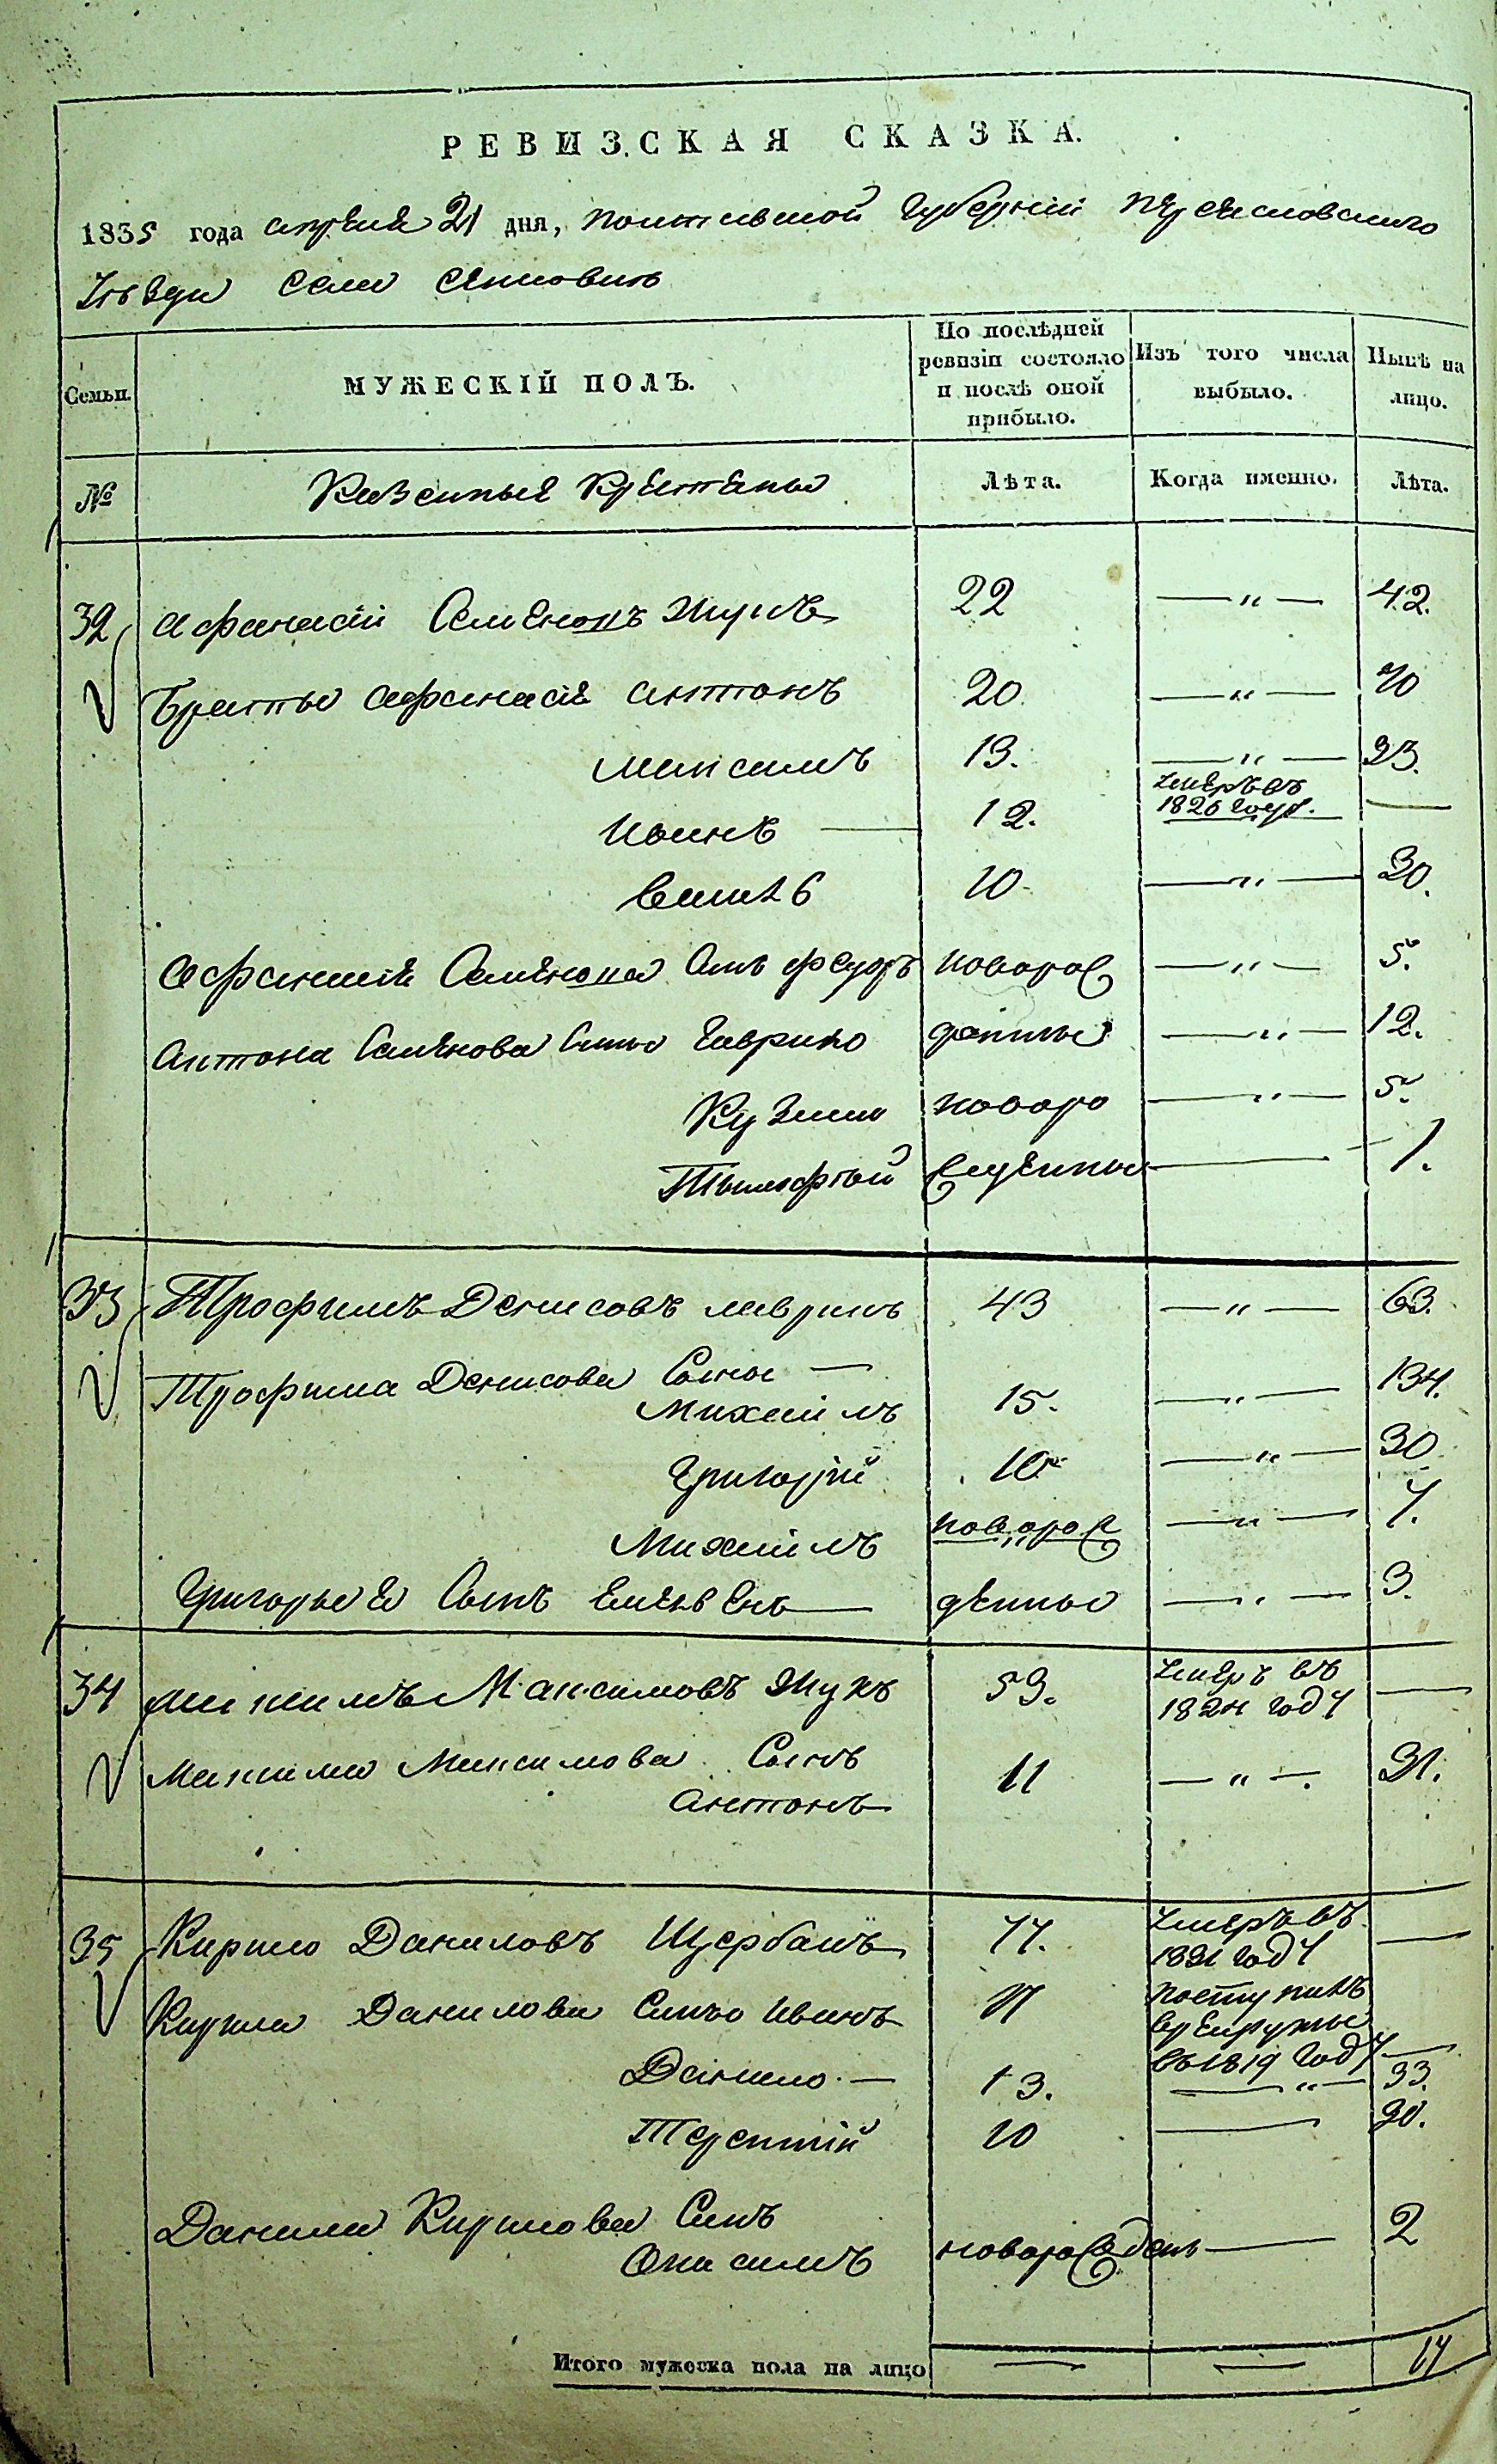 РЕВИЗСКАЯ СКАЗКА.
1835 года апреля 21 дня, полтавской губерніи переяславскаго
уезда села
Семьи. МУЖЕСКІЙ ПОЛЪ. По послѣдней ревизіи состояло и послѣ оной прибыло. Изъ того числа выбыло. Нынѣ на лицо.
№ Казенные крестяне Лѣта. Когда именно. Лѣта.
32 афанасій Семеновъ Жукъ 22 — " — 42.
Братья афанасія антонъ 20 — " — 40
максимъ 13. — " — 33.
Иванъ 12. умеръ въ 1826 году. —
10 — " — 30.
афанасія Семенова Сынъ федоръ новорож — " — 5.
Антона Семенова Сыны Гаврило денные — " — 12.
Кузьма новоро — " — 5.
Тымофѣй жденные — 1.
33 Трофимъ Денисовъ 43 — " — 63.
Трофима Денисова Сыны —
Михаилъ 15. — " — 34.
Григорій 10 — " — 30
Михаилъ новорож — " — 7.
Григорья Сынъ денные — " — 3.
34 Максимовъ Жукъ 53. умеръ въ 1824 году —
Максимова Сынъ
Антонъ 11 — " — 31.
35 Кирило Даниловъ Щербакъ 44. умеръ въ 1831 году —
Кирила Данилова Сыны Иванъ 17 поступилъ в рекруты въ 1819 году —
Данило — 13. — " — 33.
Терентій 10 — 30.
Данила Кирилова Сынъ
Онисимъ новорожден — 2
Итого мужеска пола на лицо — — 17